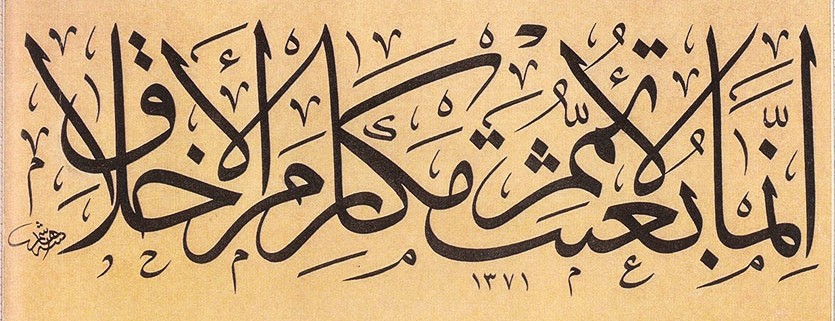 إِنَّمَا بُعِثْتُ لِأُتَمِّمَ مَكَارِمَ الْأَخْلَاقِ
١٣٧١